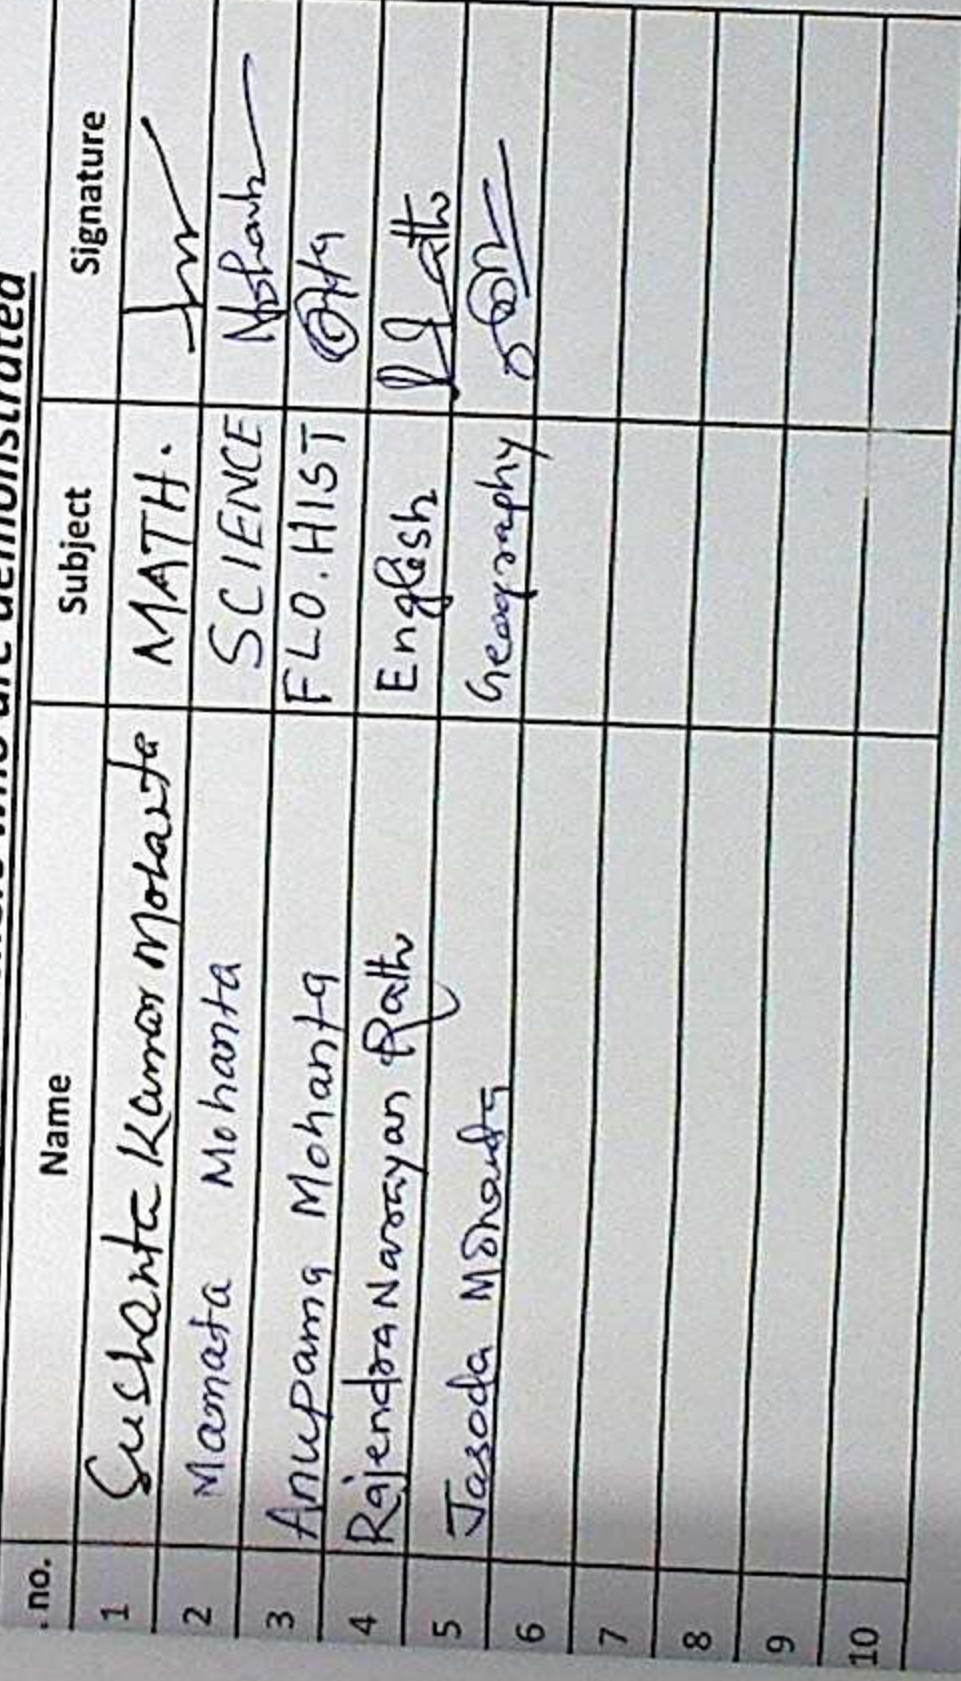 who are demonstrated
. no. Name Subject Signature
1 Sushanta Kumar Mohanta MATH.
2 Mamata Mohanta SCIENCE
3 Anupama Mohanta FLO.HIST
4 Rajendra Narayan Rath English
5 Jasoda Mohanta Geography
6
7
8
9
10